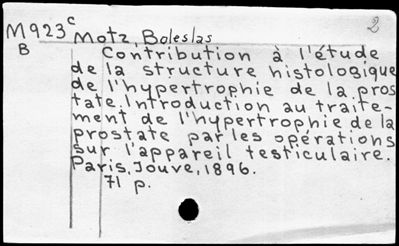 M923c Motz, Boleslas 2
B Contribution à l'étude
de la structure histologique
de l'hypertrophie de la pros
tate. Introduction au traite-
ment de l'hypertrophie de la
prostate par les opérations
sur l'appareil testiculaire.
Paris, Jouve, 1896.
71 p.